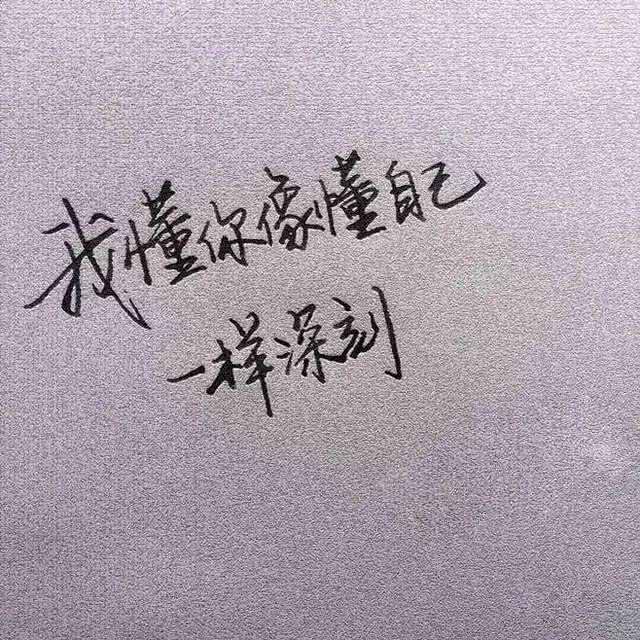 我懂你像懂自己
一样深刻